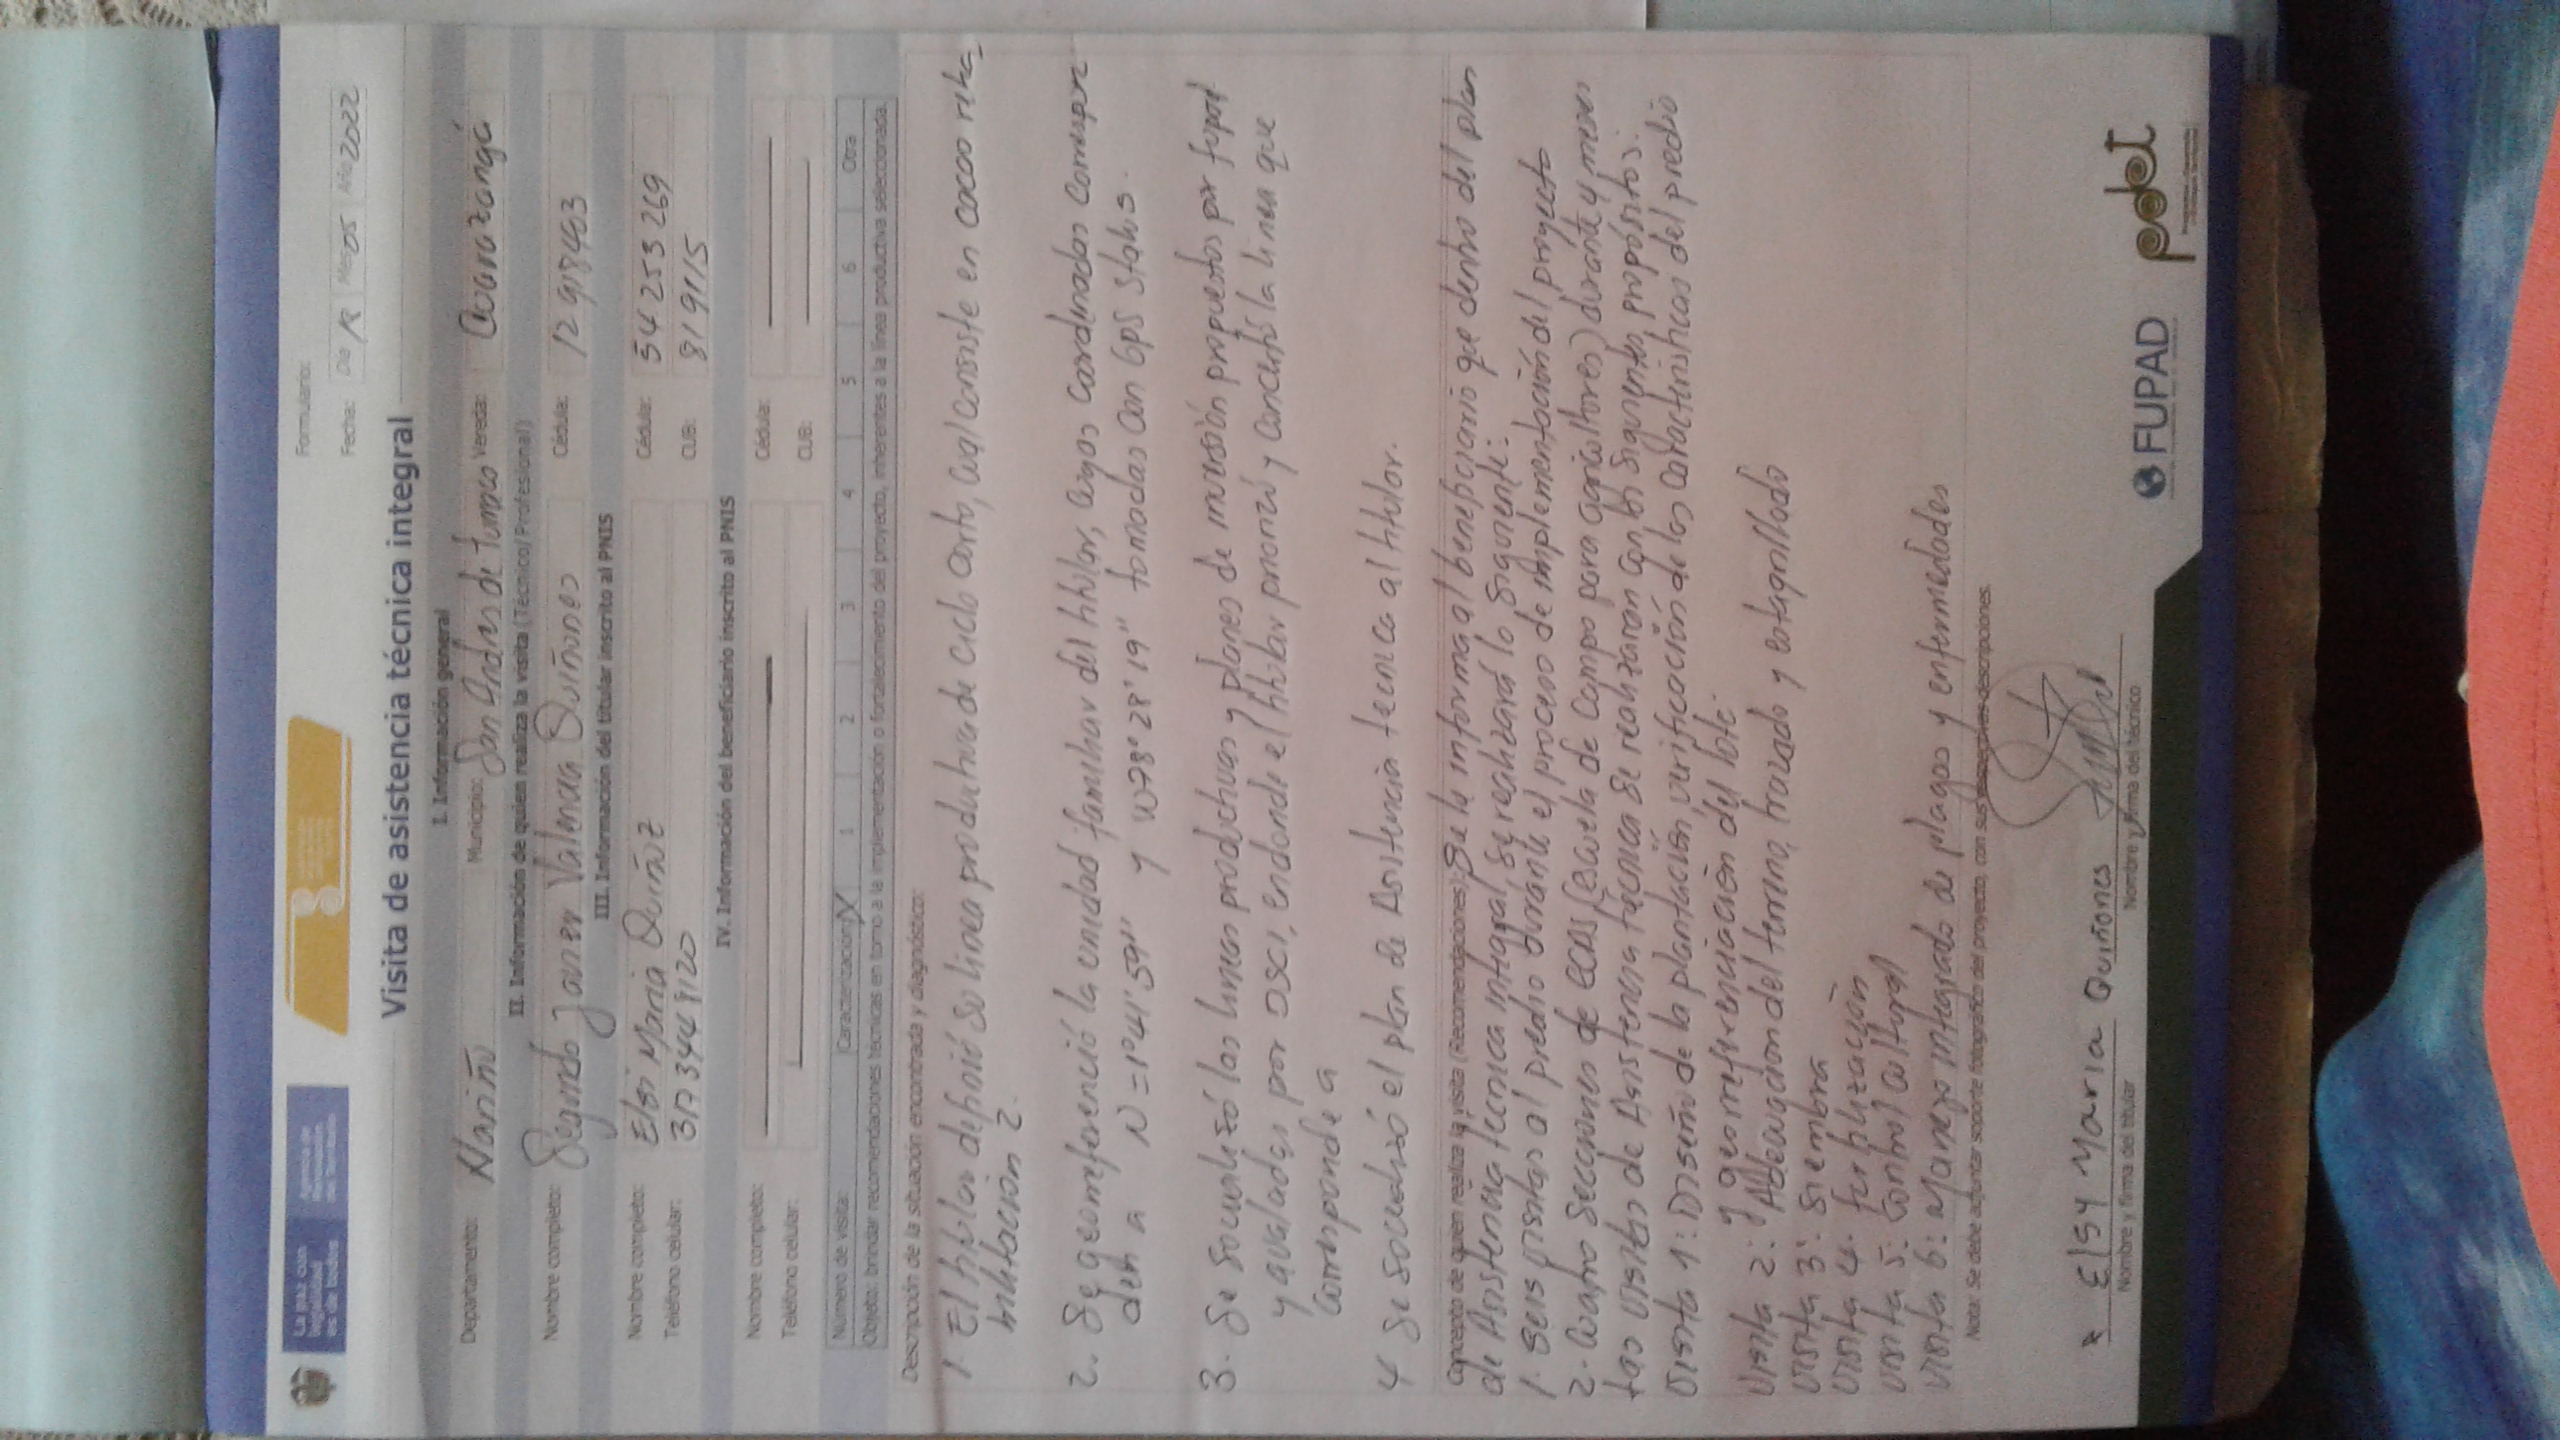 La paz con
legalidad
es de todos
Agencia de
Renovación
del Territorio
Formulario:
Fecha: Día 12 Mes 05 Año 2022
Visita de asistencia técnica integral
I. Información general
Departamento: Nariño Municipio: San Andres de Tumaco Vereda:
II. Información de quien realiza la visita (Técnico/Profesional)
Nombre completo: Segundo Janer Valencia Quiñones Cédula: 12 918403
III. Información del titular inscrito al PNIS
Nombre completo: Elsi Maria Quiñoz Cédula: 54 253 269
Teléfono celular: CUB: 819115
IV. Información del beneficiario inscrito al PNIS
Nombre completo: Cédula:
Teléfono celular: CUB:
Número de visita: Caracterización X 1 2 3 4 5 6 Otra
Objeto: brindar recomendaciones técnicas en torno a la implementación o fortalecimiento del proyecto, inherentes a la línea productiva seleccionada.
Descripción de la situación encontrada y diagnóstico:
1 El titular definió su linea productiva de ciclo corto, cual consiste en cacao
2. Se georreferenció la unidad familiar del titular, cuyas cordinadas
N = 1°41'59" y W78°28'19" tomadas con GPS Status.
3. Se socializó las lineas productivas y planes de inversión propuestos por fupad
y avalados por DSCI, endonde el titular priorizó y concertó la linea que
corresponde a
4 Se socializó el plan de Asistencia tecnica al titular.
Concepto de quien realiza la visita (Recomendaciones): Se le informa al beneficiario que dentro del plan
de Asistencia técnica integral, se realizará lo siguiente:
1. Seis visitas al predio durante el proceso de implementación del proyecto
2- Cuatro Secciones de ECAS (escuela de Campo para agricultores) durante 4 meses
Las visitas de Asistencia técnica se realizaran con los siguientes propósitos:
Visita 1: Diseño de la plantación verificación de las caracteristicas del predio
y georreferenciación del lote.
Visita 2: Adecuación del terreno, trazado y
Visita 3: Siembra
Visita 4. fertilización
Visita 5: Control cultural
Visita 6: Manejo integrado de plagas y enfermedades
Nota: Se debe adjuntar soporte fotográfico del proyecto, con sus respectivas descripciones.
x Elsy Maria Quiñones
Nombre y firma del titular Nombre y firma del técnico
FUPAD pdet